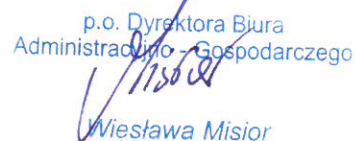 p.o. Dyrektora Biura
Administracyjno - Gospodarczego
Wiesława Misior